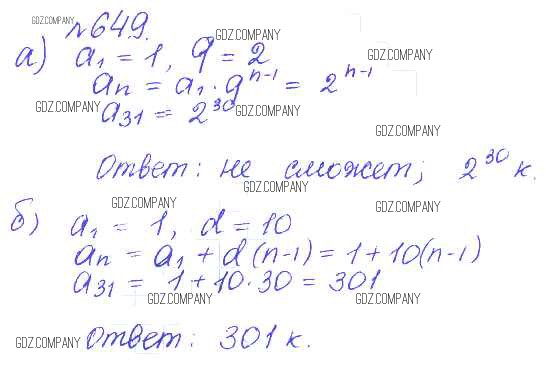 GDZ.COMPANY №649. GDZ.COMPANY
а) a₁ = 1, q = 2 GDZ.COMPANY
aₙ = a₁·qⁿ⁻¹ = 2ⁿ⁻¹
GDZ.COMPANY a₃₁ = 2³⁰ GDZ.COMPANY
GDZ.COMPANY
Ответ: не сможет; 2³⁰ к.
GDZ.COMPANY
GDZ.COMPANY GDZ.COMPANY
б) a₁ = 1, d = 10
aₙ = a₁ + d(n-1) = 1 + 10(n-1)
a₃₁ = 1 + 10·30 = 301
GDZ.COMPANY GDZ.COMPANY
GDZ.COMPANY Ответ: 301 к.